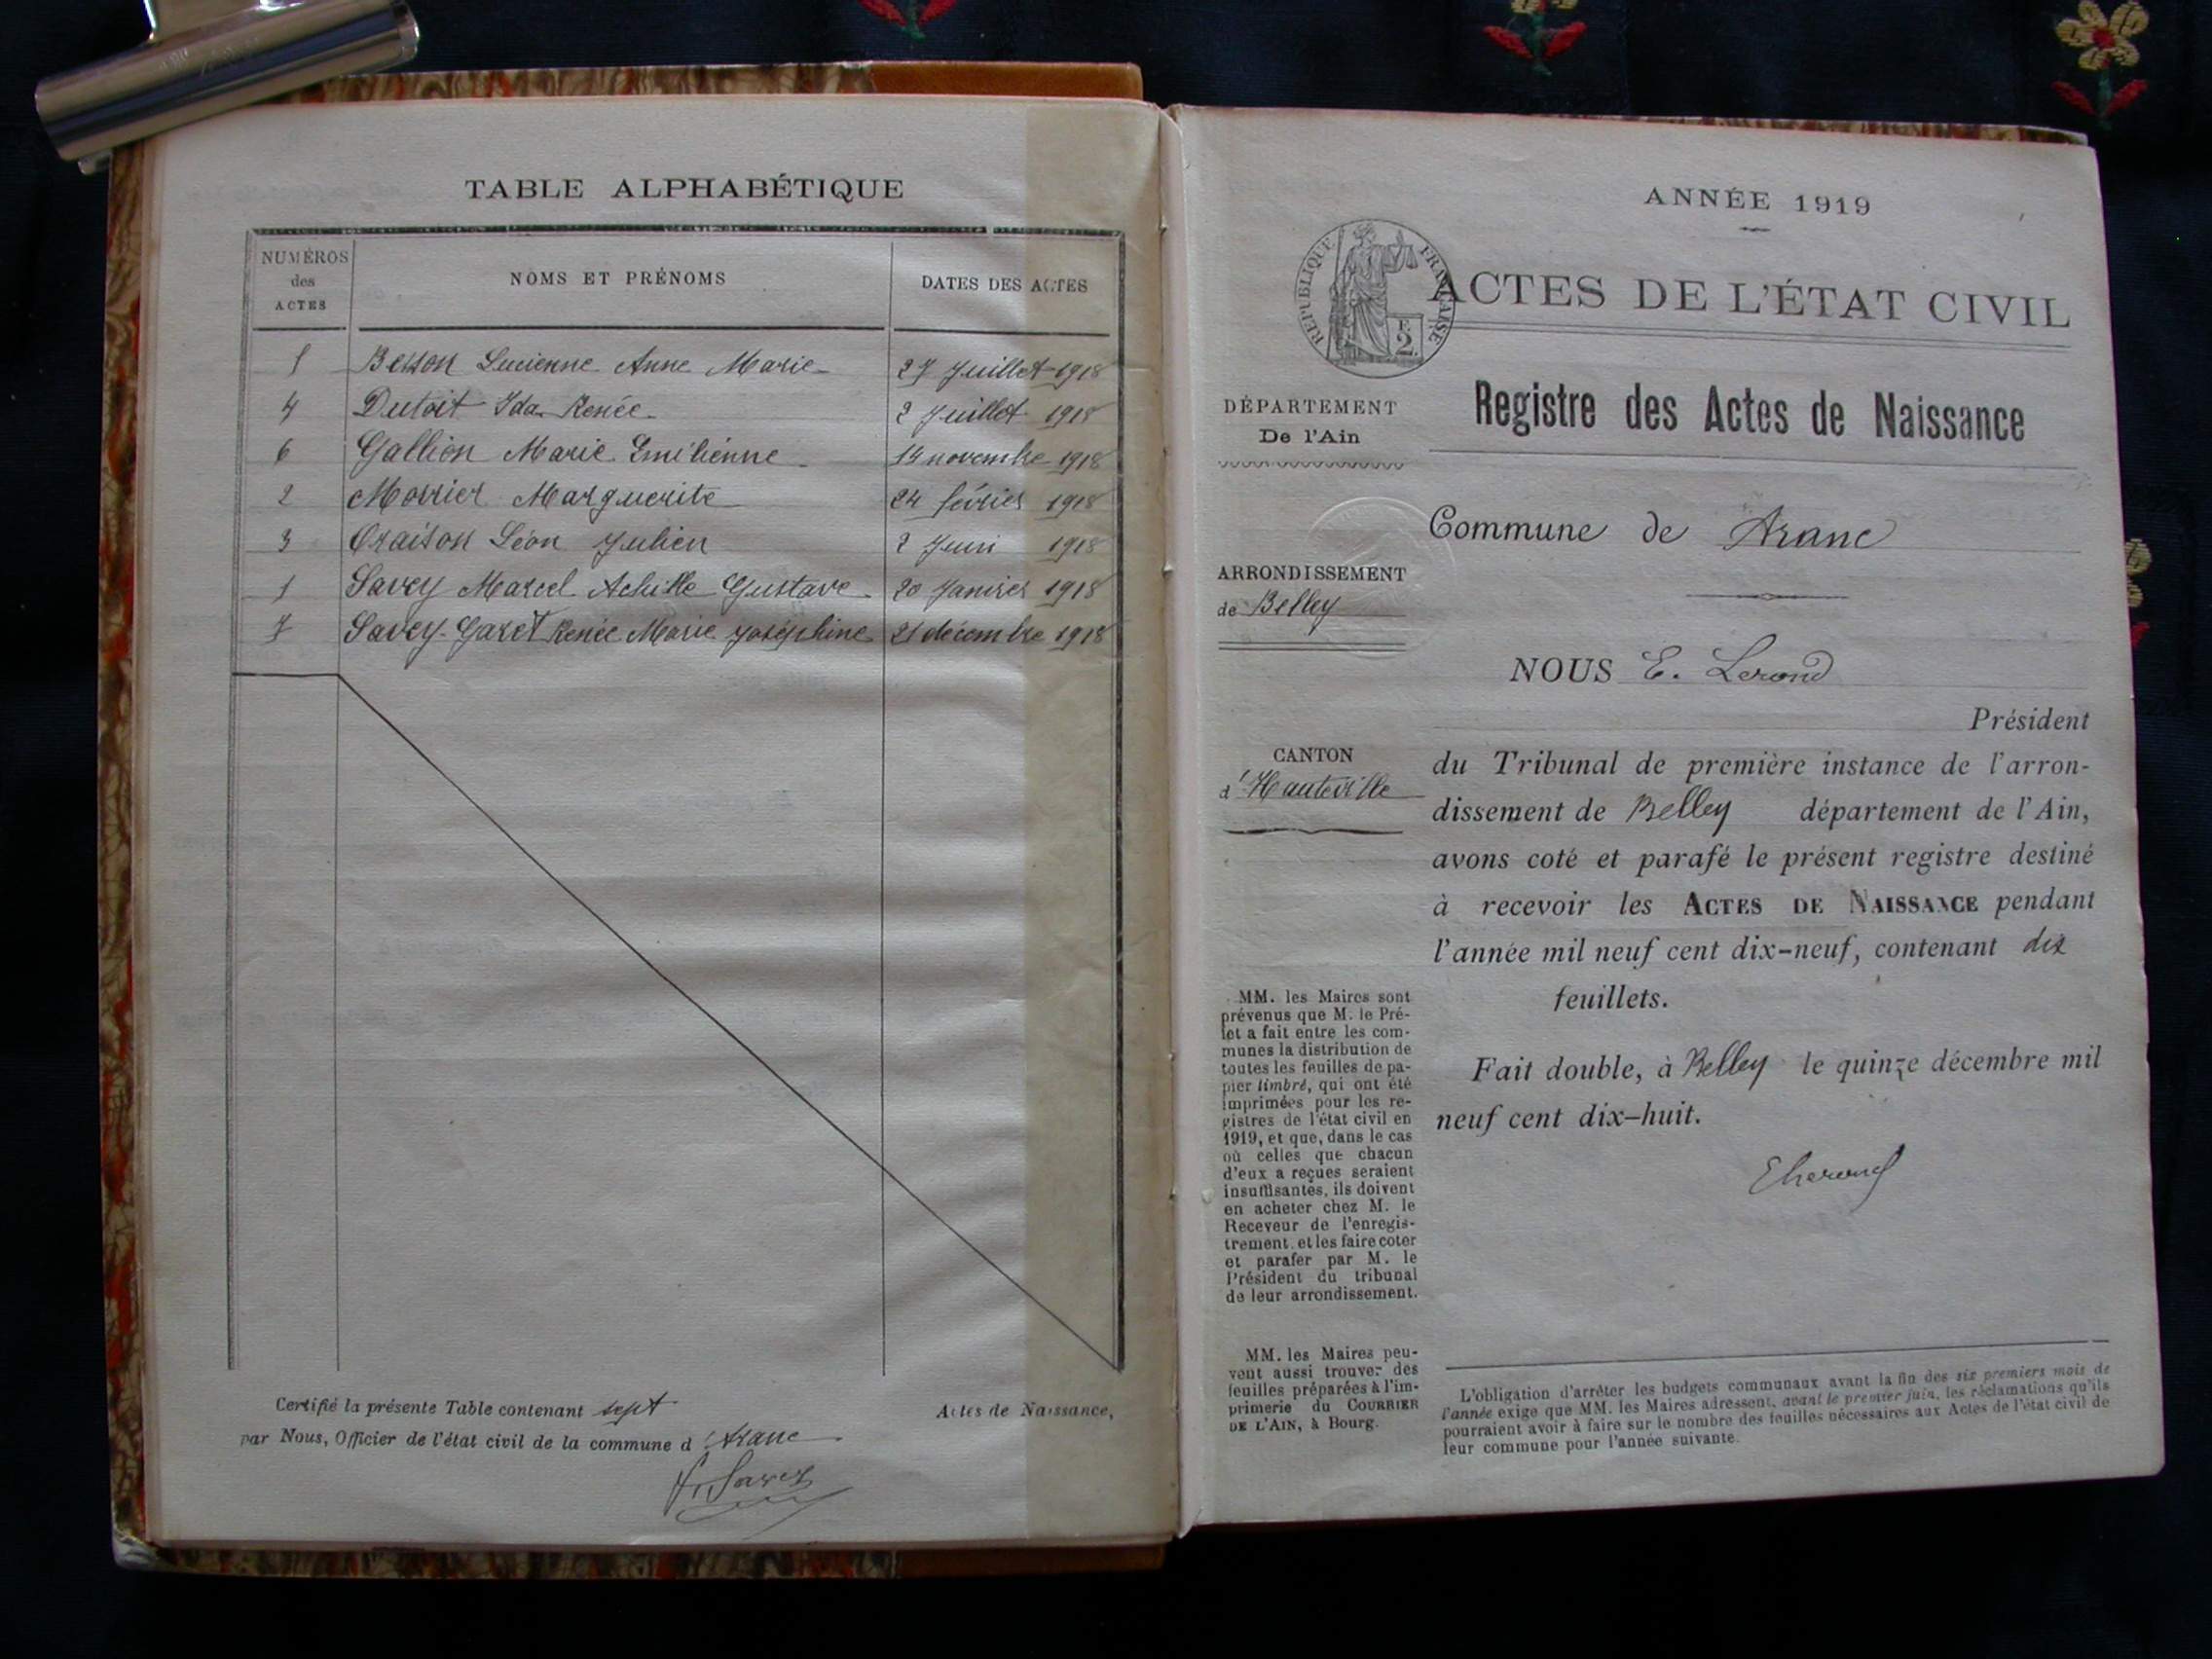 TABLE ALPHABÉTIQUE
NUMÉROS
des
ACTES
NOMS ET PRÉNOMS
DATES DES ACTES
5 Besson Lucienne Anne Marie 27 Juillet 1918
4 Dutoit Ida Renée 2 Juillet 1918
6 Gallion Marie Emilienne 14 novembre 1918
2 Morrier Marguerite 24 février 1918
3 Oraison Léon Julien 2 Juin 1918
1 Savey Marcel Achille Gustave 20 Janvier 1918
7 Savey-Garet Renée Marie Joséphine 21 décembre 1918
Certifié la présente Table contenant sept Actes de Naissance,
par Nous, Officier de l'état civil de la commune d'Aranc
ANNÉE 1919
RÉPUBLIQUE FRANÇAISE
F.
2
ACTES DE L'ÉTAT CIVIL
Registre des Actes de Naissance
DÉPARTEMENT
De l'Ain
Commune de Aranc
ARRONDISSEMENT
de Belley
NOUS E. Lerond
Président
CANTON
d'Hauteville
du Tribunal de première instance de l'arron-
dissement de Belley département de l'Ain,
avons coté et parafé le présent registre destiné
à recevoir les ACTES DE NAISSANCE pendant
l'année mil neuf cent dix-neuf, contenant dix
feuillets.
Fait double, à Belley le quinze décembre mil
neuf cent dix-huit.
MM. les Maires sont
prévenus que M. le Pré-
fet a fait entre les com-
munes la distribution de
toutes les feuilles de pa-
pier timbré, qui ont été
imprimées pour les re-
gistres de l'état civil en
1919, et que, dans le cas
où celles que chacun
d'eux a reçues seraient
insuffisantes, ils doivent
en acheter chez M. le
Receveur de l'enregis-
trement et les faire coter
et parafer par M. le
Président du tribunal
de leur arrondissement.
MM. les Maires peu-
vent aussi trouver des
feuilles préparées à l'im-
primerie du COURRIER
DE L'AIN, à Bourg.
L'obligation d'arrêter les budgets communaux avant la fin des six premiers mois de
l'année exige que MM. les Maires adressent, avant le premier juin, les réclamations qu'ils
pourraient avoir à faire sur le nombre des feuilles nécessaires aux Actes de l'état civil de
leur commune pour l'année suivante.